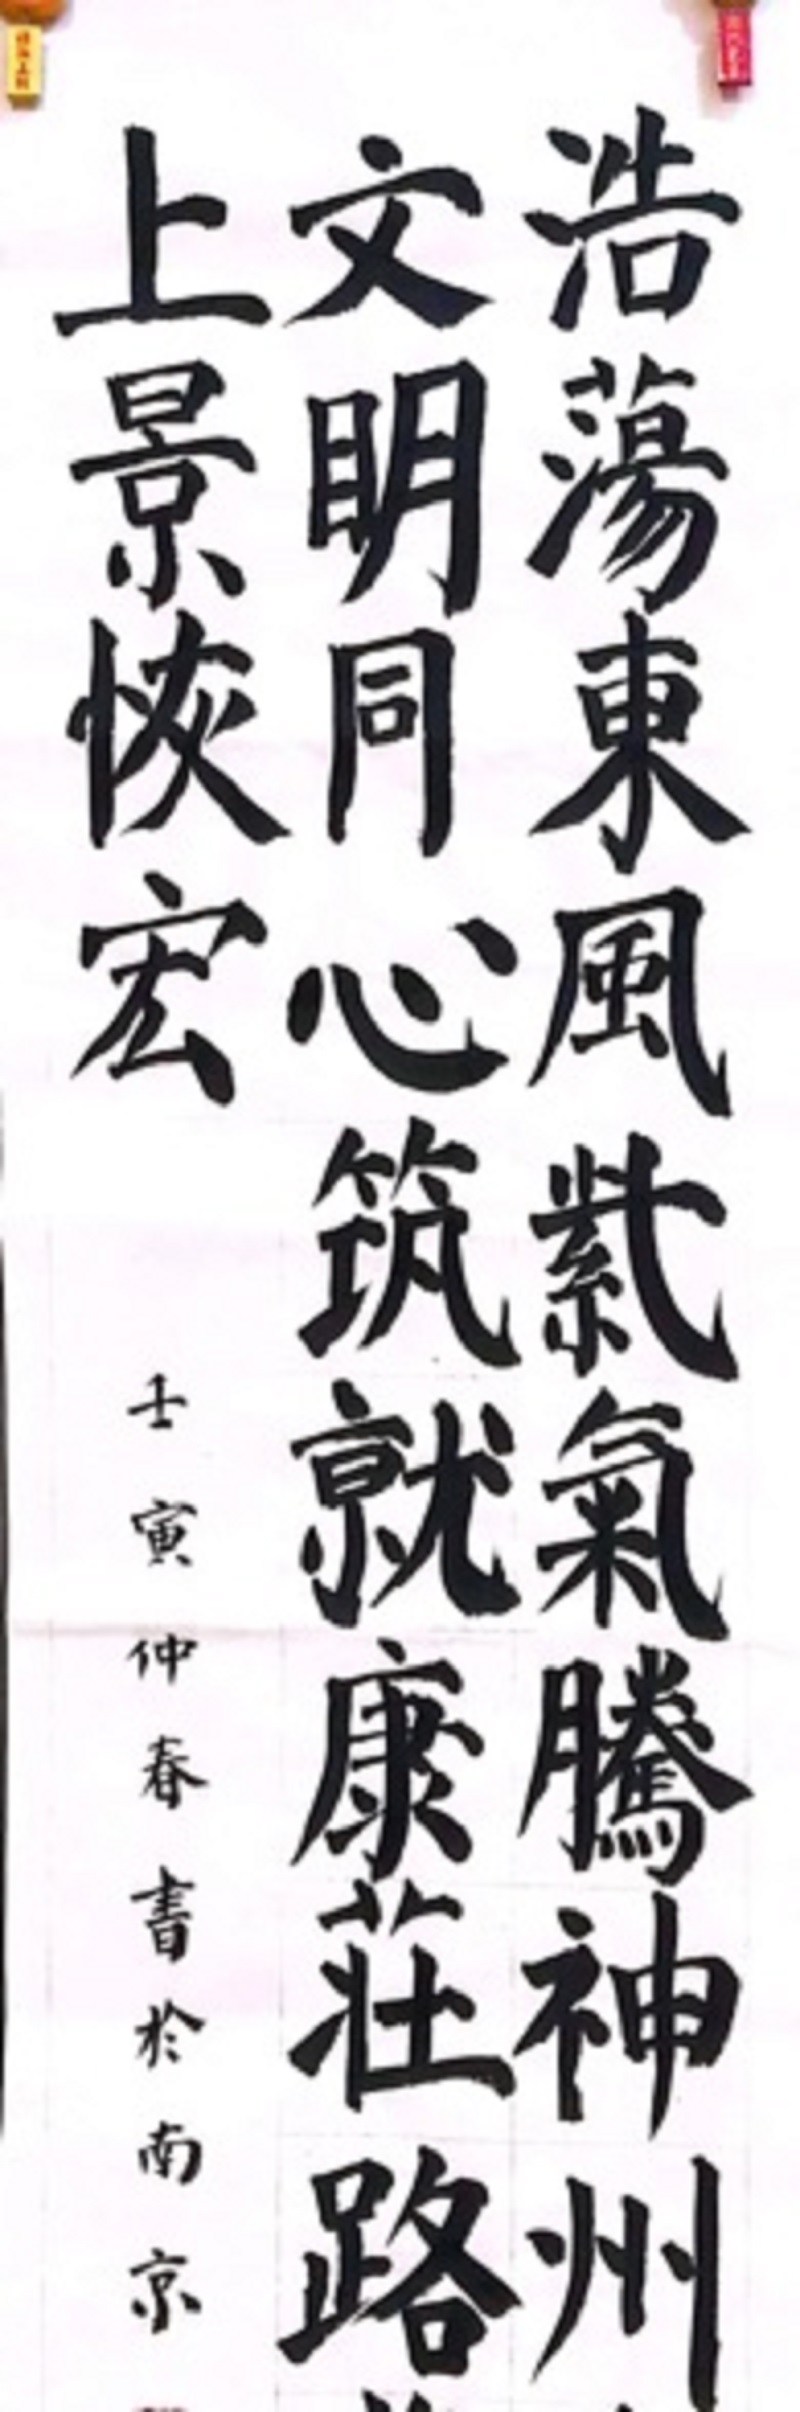 浩蕩東風紫氣騰神州
文明同心筑就康莊路
上景恢宏
壬寅仲春書於南京